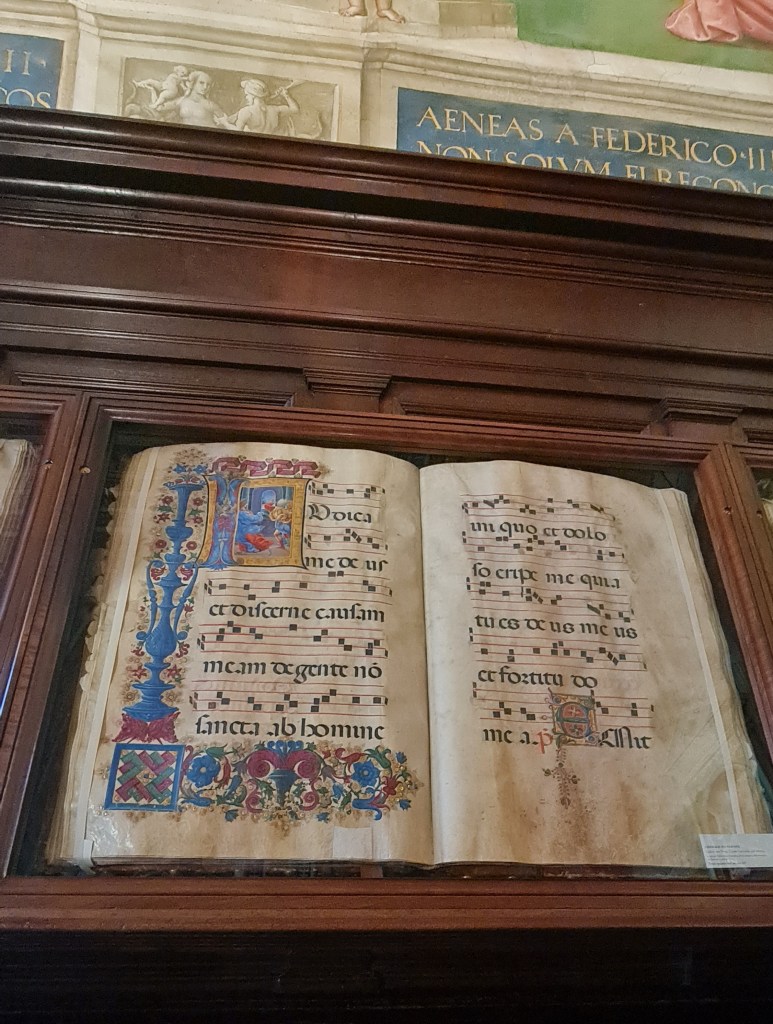 II
COS
AENEAS A FEDERICO·III
NON SOLVM EI RECONC
IUdica
me de us
et discerne causam
me am de gente nō
sancta ab homine
ini quo et dolo
so eripe me quia
tu es de us me us
et fortitu do
me a. p Emit